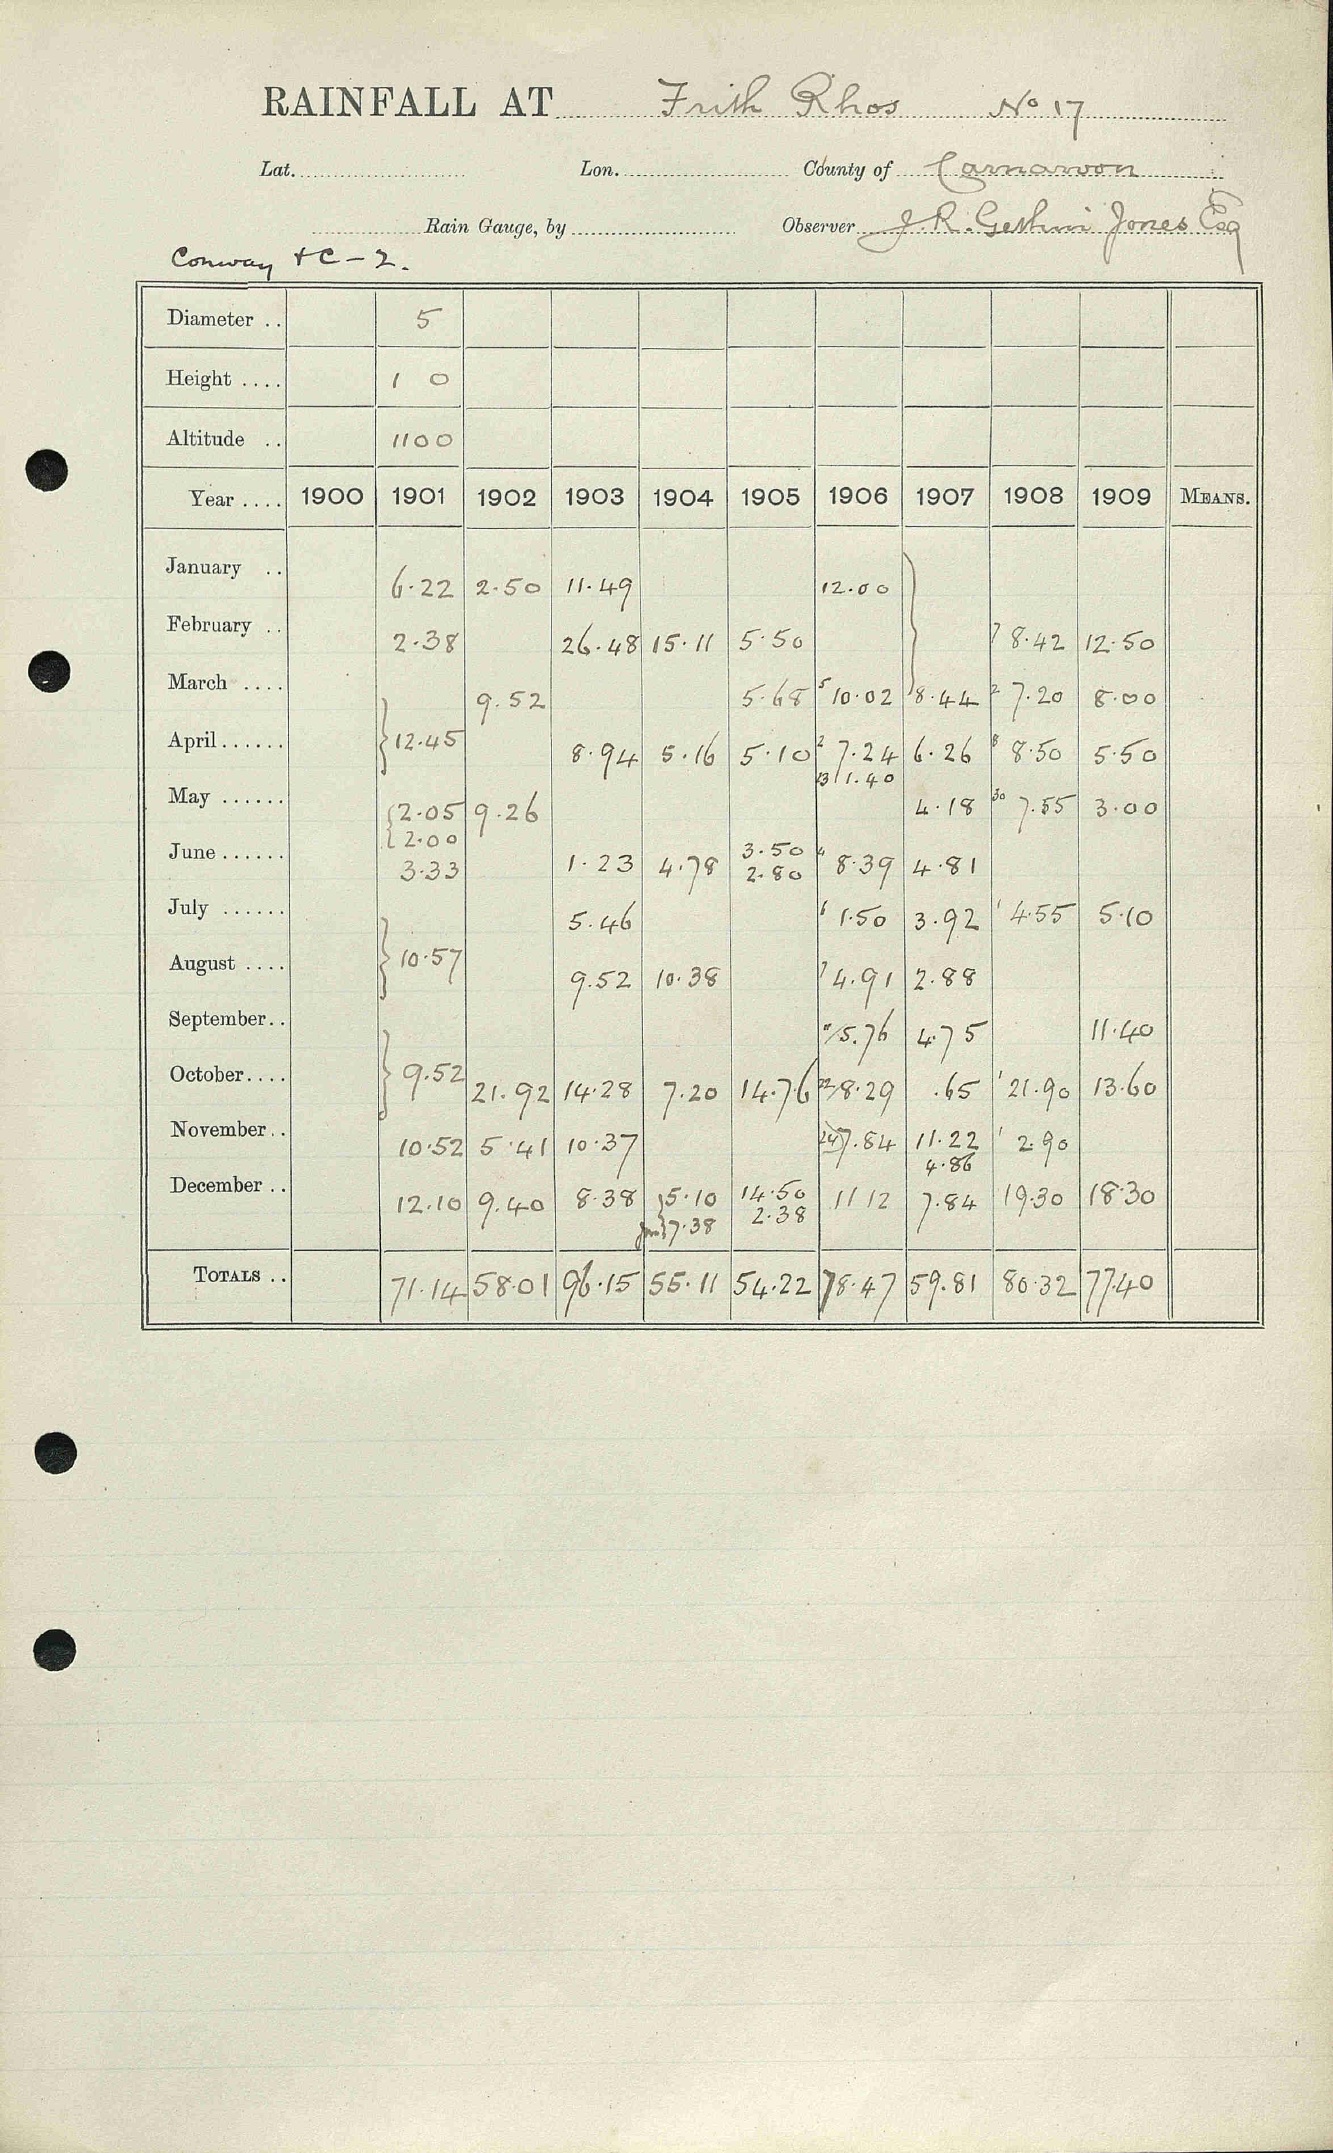 RAINFALL AT Frith Rhos No 17
Lat. Lon. County of Carnarvon
Rain Gauge, by Observer J. R. Jones Esq
Conway + C - 2.
Diameter .. 5
Height .... 1 0
Altitude .. 1100
Year .... 1900 1901 1902 1903 1904 1905 1906 1907 1908 1909 MEANS.
January .. 6.22 2.50 11.49 12.00
February .. 2.38 26.48 15.11 5.50 7 8.42 12.50
March .... 9.52 5.68 5 10.02 8.44 2 7.20 8.00
April...... 12.45 8.94 5.16 5.10 2 7.24 6.26 8 8.50 5.50
13 1.40
May ...... 2.05 9.26 4.18 30 7.55 3.00
2.00 3.50
June ...... 3.33 1.23 4.78 2.80 4 8.39 4.81
July ...... 5.46 6 1.50 3.92 1 4.55 5.10
August .... 10.57 9.52 10.38 7 4.91 2.88
September.. 5.76 4.75 11.40
October.... 9.52 21.92 14.28 7.20 14.76 22/8.29 .65 1 21.90 13.60
November.. 10.52 5.41 10.37 24 7.84 11.22 1 2.90
4.86
December .. 12.10 9.40 8.38 5.10 14.50 11 12 7.84 19.30 18.30
7.38 2.38
TOTALS .. 71.14 58.01 96.15 55.11 54.22 78.47 59.81 80.32 77.40